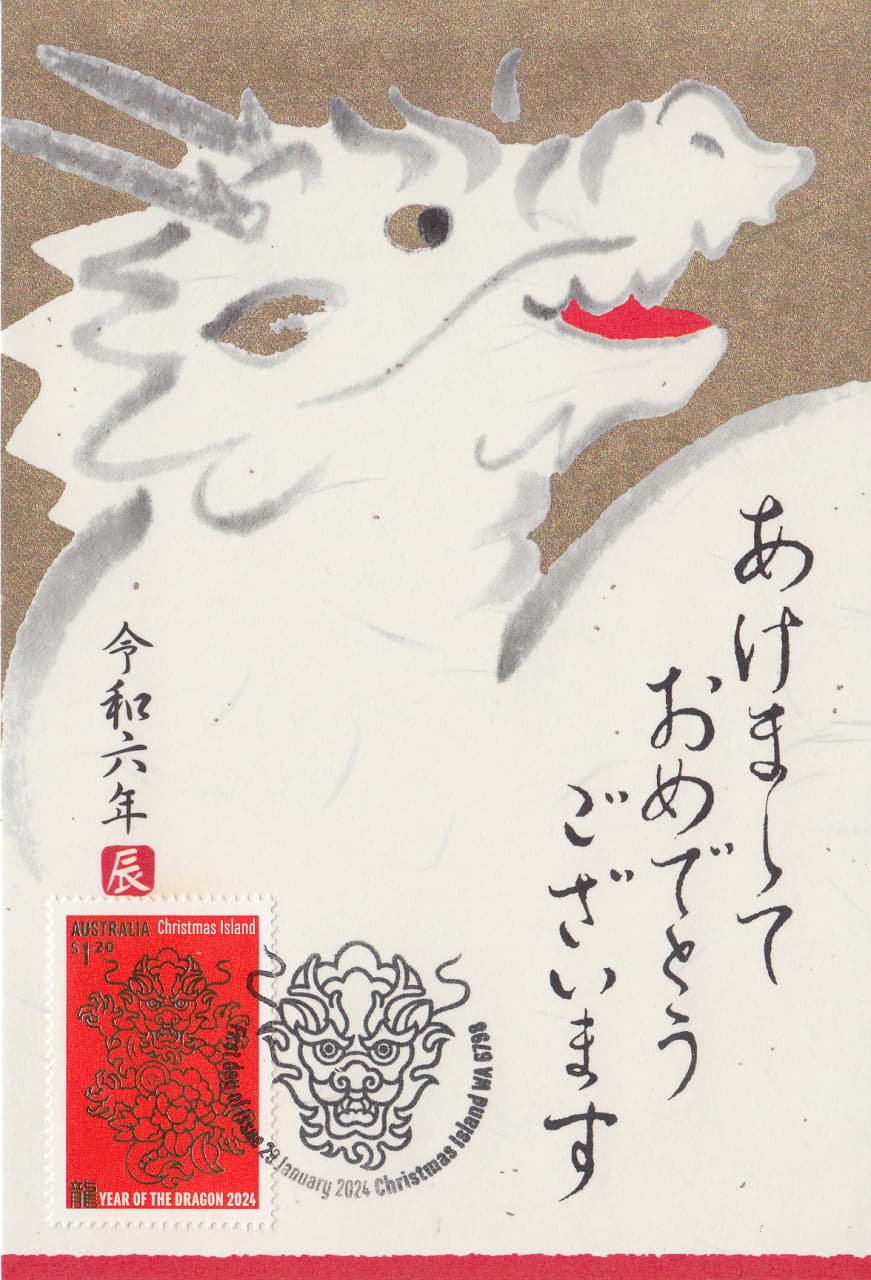 あけまして
おめでとう
ございます
令和六年
辰
AUSTRALIA Christmas Island
$1.20
龍 YEAR OF THE DRAGON 2024
First day of issue 29 January 2024 Christmas Island WA 6798